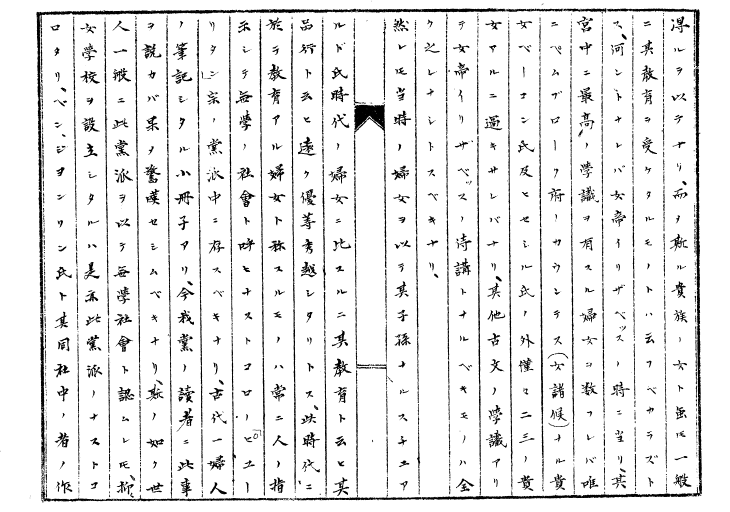 得ルヲ以テナリ、而メ斯ル貴族ノ女ト虽モ一般
ニ其教育ヲ受ケタルモノトハ云フベカラズト
ス、何ントナレバ女帝イリザベッスノ時ニ当リ、其
宮中ニ最高ノ學識ヲ有スル婦女ヲ数フレバ唯
ニペムブローク府ノカウンテス(女諸侯)ナル貴
女ベーコン氏及ヒセシル氏ノ外僅々二三ノ貴
女アルニ過キサレバナリ、其他古文ノ學識アリ
テ女帝イリザベッスノ侍講トナルベキモノハ全
ク之レナシトスベキナリ、
然レモ当時ノ婦女ヲ以テ其子孫ナルスチュア
ルド氏時代ノ婦女ニ比スルニ其教育ト云ヒ其
品行ト云ヒ遠ク優等秀越シタリトス、此時代ニ
於テ教育アル婦女ト称スルモノハ常ニ人ノ指
示シテ無學ノ社會ト呼ヒナストコロノピユー
リタン宗ノ黨派中ニ存スベキナリ、古代一婦人
ノ筆記シタル小冊子アリ、今我黨ノ讀者ニ此事
ヲ説カバ果ヲ驚嘆セシムベキナリ、斯ノ如ク世
人一般ニ此黨派ヲ以テ無學社會ト認ムレモ、抑
女學校ヲ設立シタルハ是亦此黨派ノナストコ
ロタリ、ベン、ジヨンソン氏ト其同社中ノ者ノ作